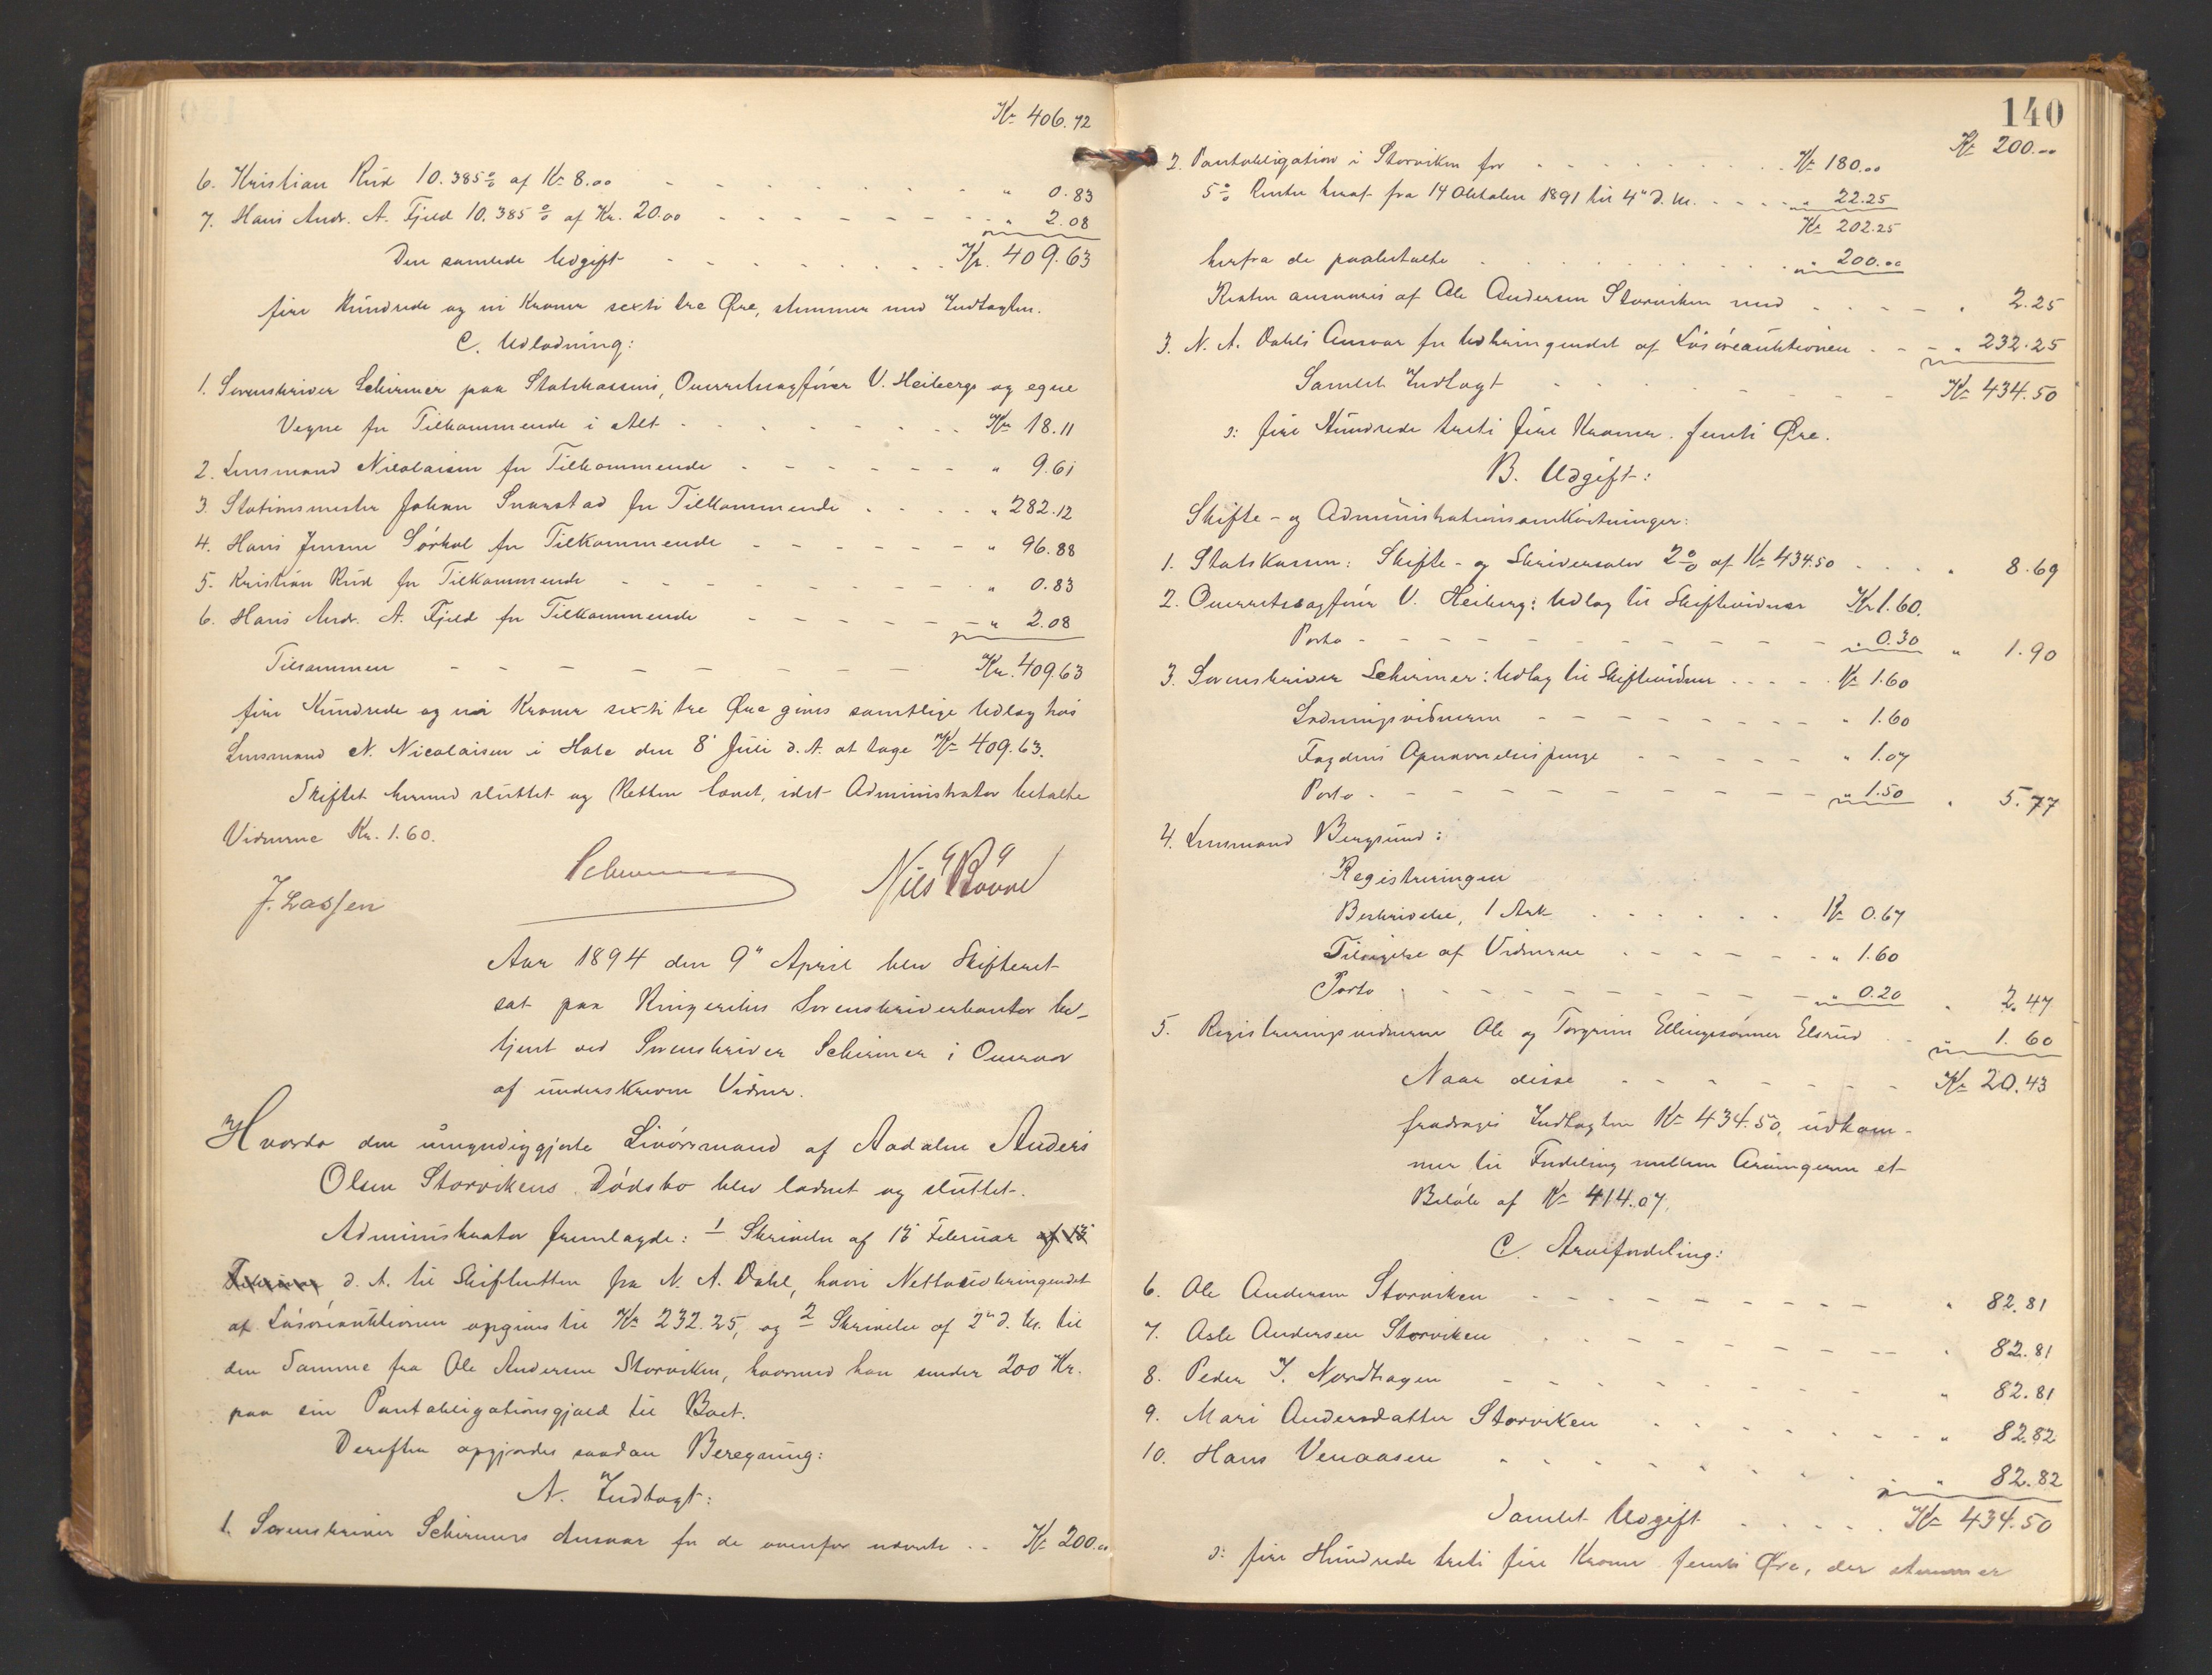 Kr. 406.72
6. Kristian Rud 10.385% af Kr. 8.00 - - - - - - - " 0.83
7. Hans Andr. A. Fjeld 10.385% af Kr. 20.00 - - - - - - - " 2.08
Den samlede Udgift - - - - - - - Kr. 409.63
fire Hundrede og ni Kroner sexti tre Øre, stemmer med Indtægten.
C. Udlodning:
1. Sorenskriver Schirmer paa Statskassens, Overretssagfører V. Heibergs og egne
Vegne for Tilkommende i Alt - - - - - - - Kr. 18.11
2. Lensmand Nicolaisen for Tilkommende - - - - - - " 9.61
3. Stationsmester Johan Snarstad for Tilkommende - - - - " 282.12
4. Hans Jensen Sørhol for Tilkommende - - - - - - " 96.88
5. Kristian Rud for Tilkommende - - - - - - - " 0.83
6. Hans Andr. A. Fjeld for Tilkommende - - - - - - " 2.08
Tilsammen - - - - - - - - - Kr. 409.63
fire Hundrede og ni Kroner sexti tre Øre gives samtlige Udlæg hos
Lensmand N. Nicolaisen i Hole den 8' Juli d. A. at tage Kr. 409.63.
Skiftet hermed sluttet og Retten hævet, idet Administrator betalte
Vidnerne Kr. 1.60.
Schirmer
J. Lassen
Nils
Aar 1894 den 9" April blev Skifteret
sat paa Ringerikes Sorenskriverkontor be-
tjent ved Sorenskriver Schirmer i Overvær
af underskrevne Vidner.
Hvorda den umyndiggjorte Livørsmand af Aadalen Anders
Olsen Storvikens Dødsbo blev lodnet og sluttet.
Administrator fremlagde: 1 Skrivelse af 13' Februar af 13'
Februar d. A. til Skifteretten fra N. A. Dahl, hvori Nettoudbringendet
af Løsøreauktionen opgives til Kr. 232.25, og 2 Skrivelse af 2" d. M. til
den Samme fra Ole Andersen Storviken, hvormed han sender 200 Kr.
paa sin Pantobligationsgjæld til Boet.
Derefter opgjordes saadan Beregning:
A. Indtægt:
1. Sorenskriver Schirmers Ansvar for de ovenfor nævnte - - Kr. 200.00
140
Kr. 200.00
2. Pantobligation i Storviken for - - - - - - - Kr. 180.00
5% Renter heraf fra 14 Oktober 1891 til 4" d. M. - - - - " 22.25
Kr. 202.25
herfra de paabetalte - - - - - - - " 200.00
Resten ansvares af Ole Andersen Storviken med - - - - " 2.25
3. N. A. Dahls Ansvar for Udbringendet af Løsøreauktionen - - - " 232.25
Samlet Indtægt - - - - - - - Kr. 434.50
ɔ: fire Hundrede treti fire Kroner femti Øre.
B. Udgift:
Skifte- og Administrationsomkostninger:
1. Statskassen: Skifte- og Skriversalær 2% af Kr. 434.50 - - - - " 8.69
2. Overretssagfører V. Heiberg: Udlæg til Skiftevidner Kr. 1.60.
Porto - - - - - - - - - - " 0.30 " 1.90
3. Sorenskriver Schirmer: Udlæg til Skiftevidner - - - - Kr. 1.60
Lodningsvidnerne - - - - - - - - " 1.60
Fogdens Opnævnelsespenge - - - - - " 1.07
Porto - - - - - - - - - - " 1.50 " 5.77
4. Lensmand Bergsund:
Registreringen
Beskrivelse, 1 Ark - - - - - - Kr. 0.67
Tilsigelse af Vidnerne - - - - - - " 1.60
Porto - - - - - - - - - " 0.20 " 2.47
5. Registreringsvidnerne Ole og Torgrim Ellingsønner Elsrud - - " 1.60
Naar disse - - - - - - - Kr. 20.43
fradrages Indtægten Kr. 434.50, udkom-
mer til Fordeling mellem Arvingerne et
Beløb af Kr. 414.07.
C. Arvefordeling:
6. Ole Andersen Storviken - - - - - - - - - " 82.81
7. Asle Andersen Storviken - - - - - - - - " 82.81
8. Peder I. Nordhagen - - - - - - - - " 82.81
9. Mari Andersdatter Storviken - - - - - - - " 82.82
10. Hans Venaasen - - - - - - - - - " 82.82
Samlet Udgift - - - - - Kr. 434.50
ɔ: fire Hundrede treti fire Kroner femti Øre, der stemmer